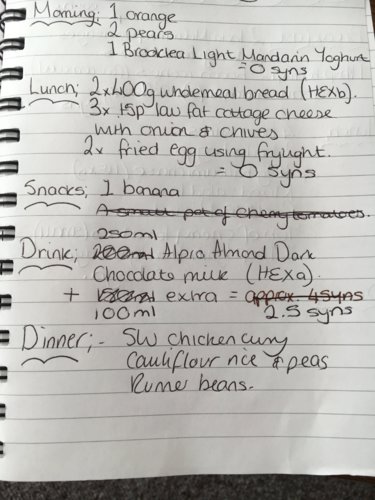 Morning; 1 orange
2 pears
1 Brooklea Light Mandarin Yoghurt
= 0 syns
Lunch; 2x400g wholemeal bread (HEXb).
3x 15p low fat cottage cheese
with onion & chives
2x fried egg using frylight.
= 0 syns
Snacks; 1 banana
A small pot of cherry tomatoes.
250ml
Drink; 200ml Alpro Almond Dark
Chocolate milk (HEXa).
+ 150ml extra = approx. 4syns
100ml 2.5 syns
Dinner;- SW chicken curry
Cauliflour rice & peas
Runner beans.